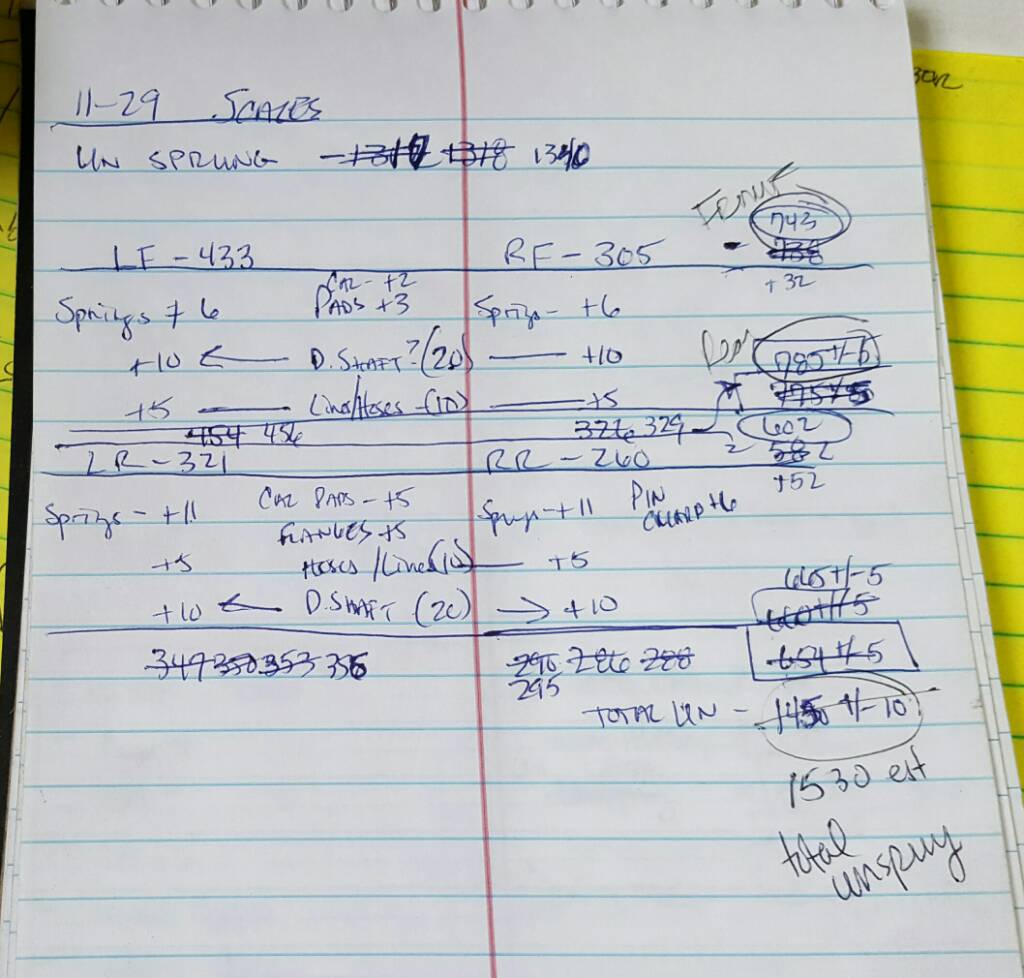 11-29 SCALES
UN SPRUNG 1317 1318 1340
743
LF - 433 RF - 305 - 738
+32
Springs + 6 PADS +3 Springs - +6
+10 ← D. SHAFT? (20) — +10 785 +/- 5
+5 — Lines/Hoses - (10) — +5 775 +/- 5
454 456 326 329 602
LR - 321 RR - 260 582
+52
Springs - +11 PADS - +5 Springs - +11 PIN
FLANGES +5 +6
+5 Hoses / Lines (10) — +5 665 +/- 5
+10 ← D. SHAFT (20) → +10 660 +/- 5
349 350 353 356 290 286 288 654 +/- 5
295
TOTAL UN - 1450 +/- 10
1530 est
total
unsprung